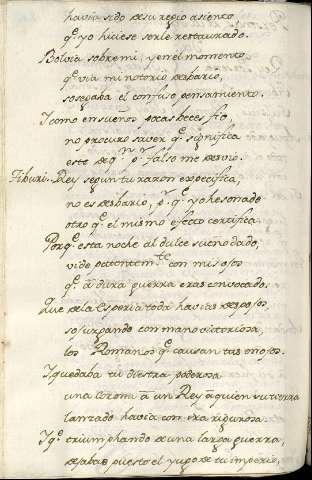 havia sido de su regio asiento
q.^e yo hiciese serle restaurado.
Bolvia sobre mi, y en el momento
q.^e via mi notorio desbario,
sosegaba el confuso pensamiento.
I como en suenos pocas beces fio
no procuro saver q.^e significa
este de q.^n p.^r falso me desvio.
Tiburi. Rey segun tu razon expecifica,
no es desbario, p.^r q.^e yo he sonado
otro q.^e el mismo efecto certifica.
Porq.^e esta noche al dulce sueno dado,
vide patentem.^te con mis ojos
q.^e â dura guerra eras convocado.
Que de la Esperia toda havias despojos,
so surpando con mano victoriosa,
los Romanos q.^e causan tus enojos.
I quedaba tu diestra poderosa
una corona â un Rey â quien su tierra
lanzado havia con ira rigurosa.
I q.^e triumphando de una larga guerra,
dejabas puesto el yugo de tu imperio,